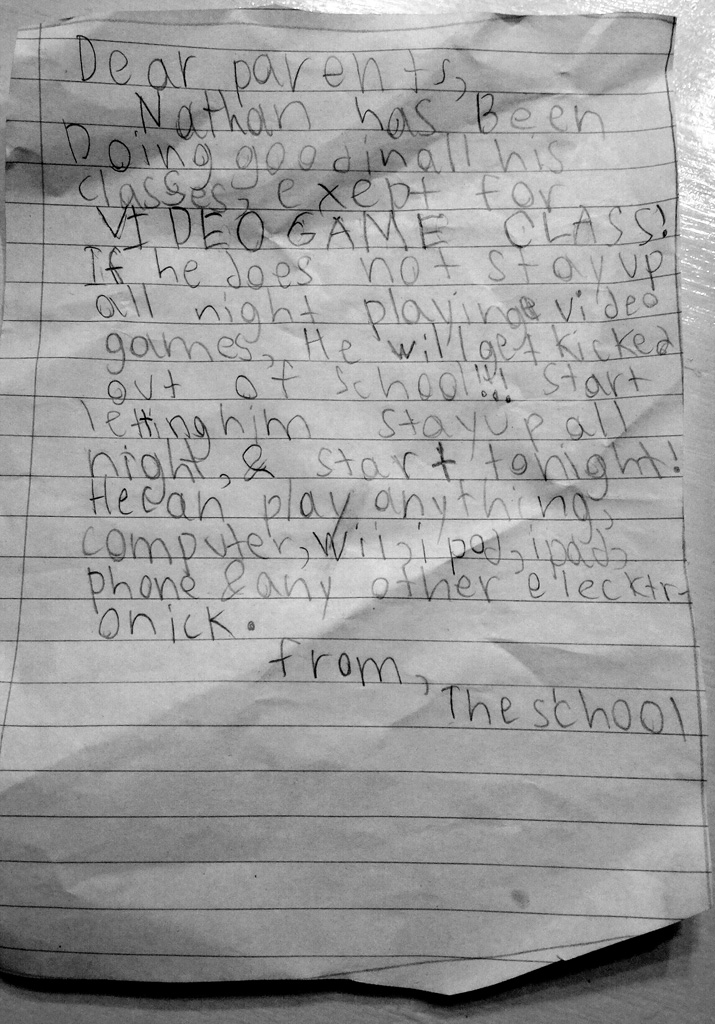 Dear parents,
Nathan has Been
Doing good in all his
classes, exept for
VIDEO GAME CLASS!
If he does not stay up
all night playing video
games, He will get kicked
out of school!!! start
letting him stay up all
night, & start tonight!
He can play anything,
computer, Wii, ipod, ipad,
phone & any other elecktr-
onick.
from,
The school